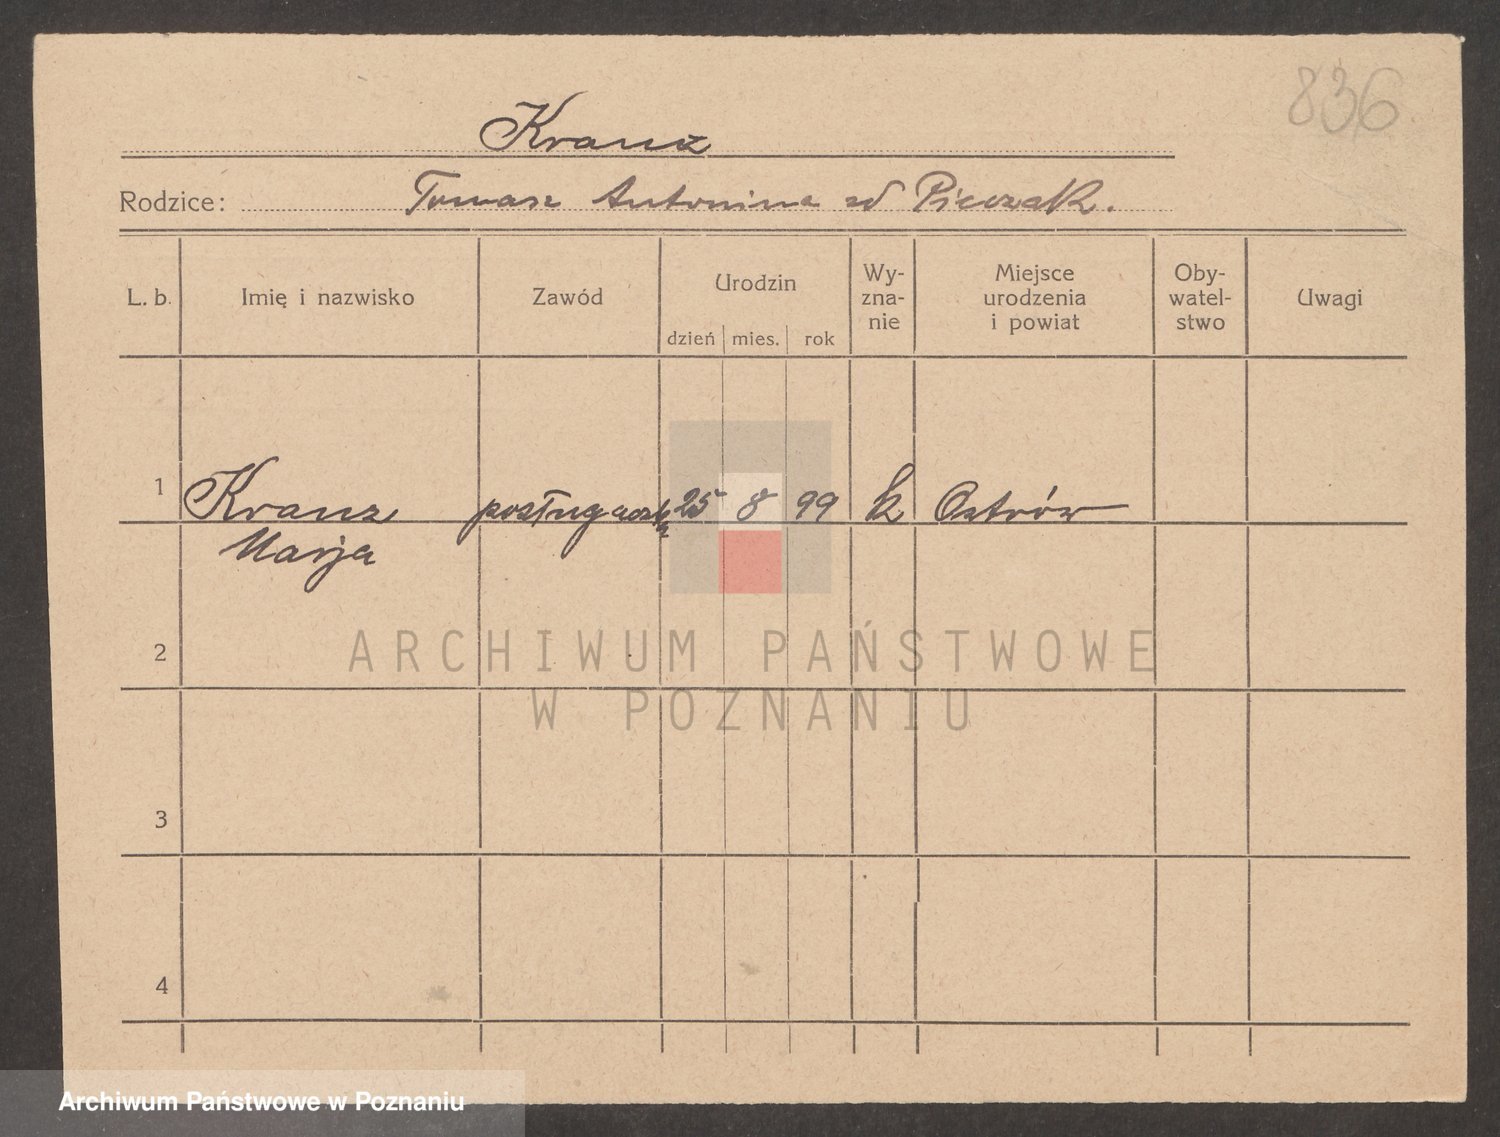 836
Kranz
Rodzice: Tomasz Antonina zd Pieczak.
L. b. Imię i nazwisko Zawód Urodzin dzień mies. rok Wy- zna- nie Miejsce urodzenia i powiat Oby- watel- stwo Uwagi
1 Kranz posługaczka 25 8 99 k Ostrów
Marja
2
ARCHIWUM PAŃSTWOWE
W POZNANIU
3
4
Archiwum Państwowe w Poznaniu